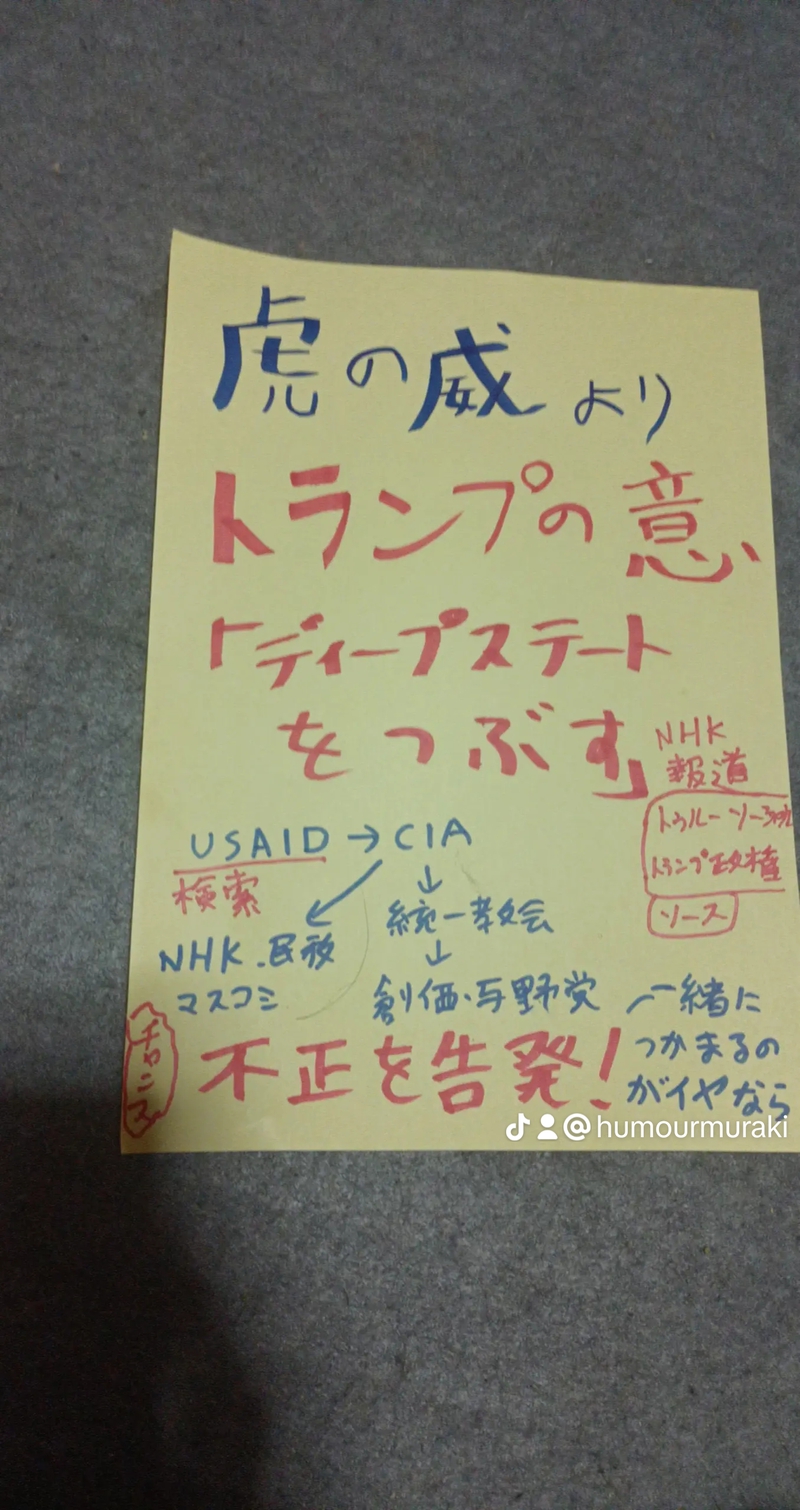 虎の威より
トランプの意
「ディープステート
をつぶす」
NHK
報道
トゥルーソーシャル
トランプ政権
ソース
USAID→CIA
検索
↓
統一教会
↓
NHK.民放
マスコミ
創価・与野党
一緒に
つかまるの
がイヤなら
不正を告発!
@humourmuraki